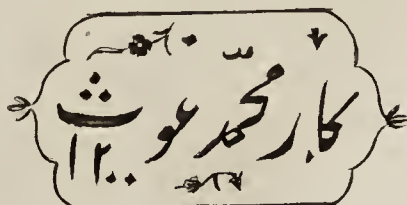 کار محمّد غوث
۱۲۰۰